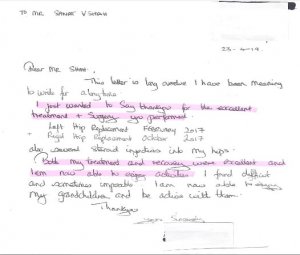 TO MR SANJIV V SHAH
23-4-19.
Dear Mr Shah,
This letter is long overdue I have been meaning
to write for a long time.
I just wanted to say thankyou for the excellent
treatment + Surgery you performed.
Left Hip Replacement February 2017
+ Right Hip Replacement October 2017
also several steroid injections into my hips.
Both my treatment and recovery were excellent and
I am now able to enjoy activities I found difficult
and sometimes impossible. I am now able to enjoy
my grandchildren and be active with them.
Thankyou